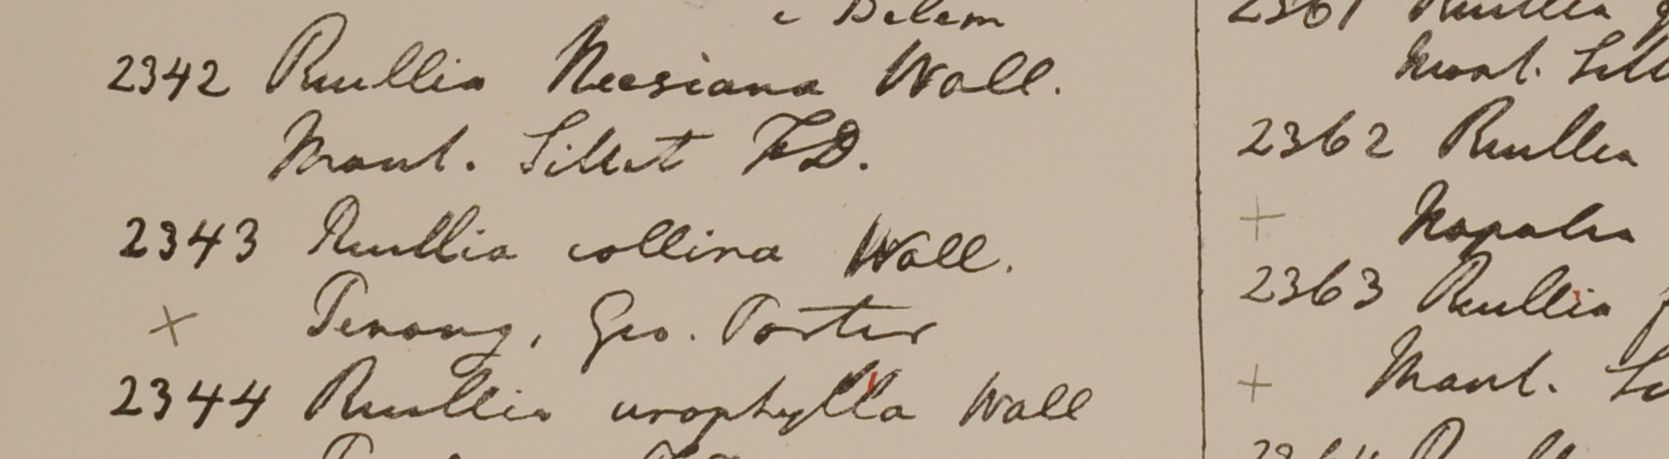 e Delem
2342 Ruellia Neesiana Wall.
Mont. Sillet FD.
2343 Ruellia collina Wall.
× Penang, Geo. Porter
2344 Ruellia urophylla Wall
2361 Ruellia
Mont. Sill
2362 Ruellia
+ Napalia
2363 Ruellia
+ Mont.